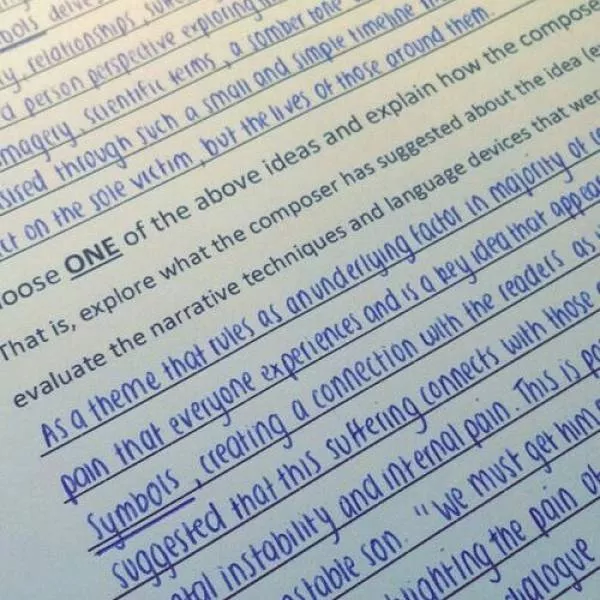 bols
relationships,
person perspective exploring
magery, scientific terms, a somber tone
through such a small and simple timeline
ct on the sole victim, but the lives of those around them.
oose ONE of the above ideas and explain how the compose
That is, explore what the composer has suggested about the idea (e
evaluate the narrative techniques and language devices that wer
As a theme that rules as an underlying factor in majority of
pain that everyone experiences and is a key idea that appea
Symbols, creating a connection with the readers as
suggested that this suffering connects with those
tal instability and internal pain. This is pa
stable son. "We must get him
lighting the pain of
dialogue